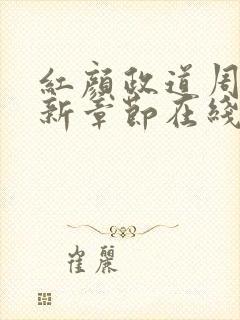 紅顏政道周
新章節在綫
崔麗